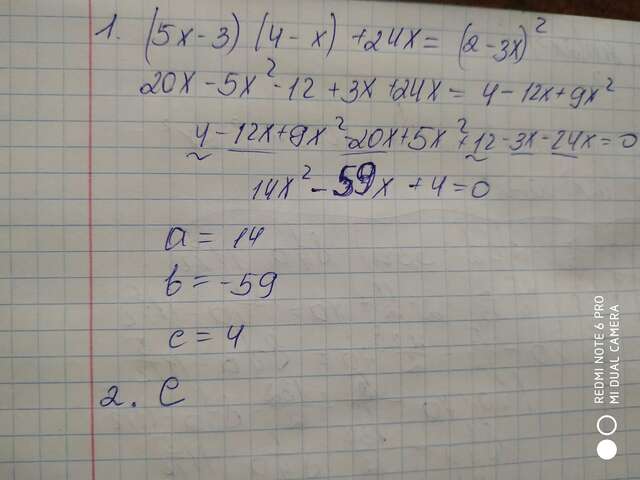 1. (5x-3)(4-x)+24x=(2-3x)²
20x-5x²-12+3x+24x=4-12x+9x²
4-12x+9x²-20x+5x²+12-3x-24x=0
14x²-59x+4=0
a=14
b=-59
c=4
2. C
REDMI NOTE 6 PRO
MI DUAL CAMERA